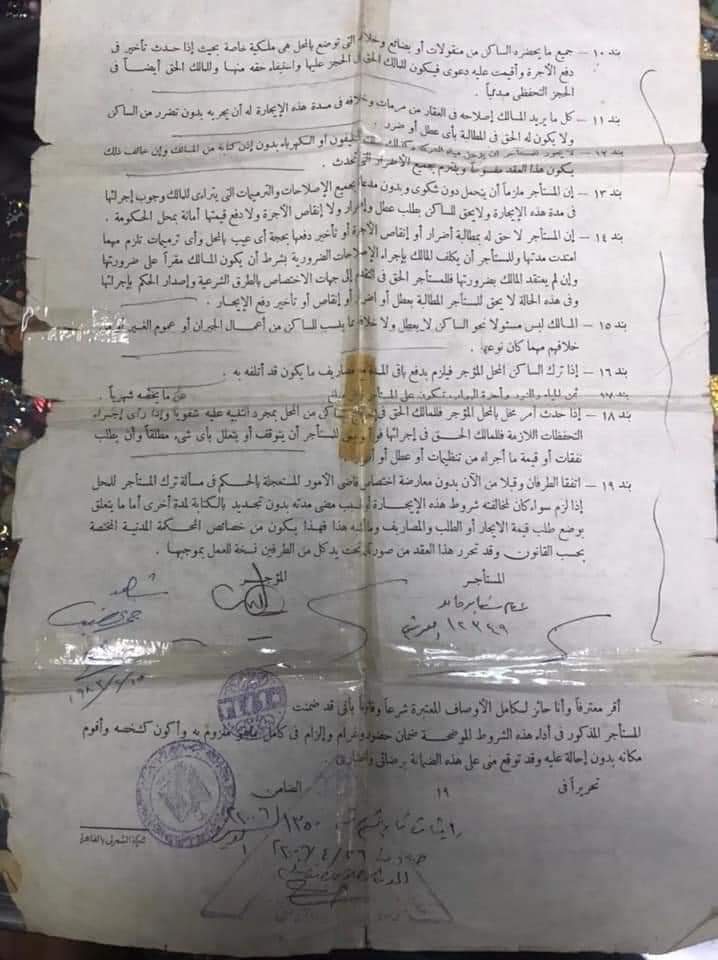 بند ١٠ – جميع ما يحضره الساكن من منقولات أو بضائع وخلافه التى توضع بالمحل هى ملكية خاصة بحيث إذا حدث تأخير فى
دفع الأجرة وأقيمت عليه دعوى فيكون للمالك الحق فى الحجز عليها واستيفاء حقه منها وللمالك الحق أيضاً فى
الحجز التحفظى مبدئياً
بند ١١ – كل ما يريد المالك إصلاحه فى العقار من مرمات وخلافه فى مدة هذه الإيجارة له أن يجريه بدون تضرر من الساكن
ولا يكون له الحق فى المطالبة بأى عطل أو ضرر .
بند ١٢ – لا يجوز للمستأجر أن يدخل مياه الشركة وكذلك التليفون أو الكهرباء بدون إذن كتابة من المالك وإن خالف ذلك
يكون هذا العقد مفسوخاً ويلتزم بجميع الأضرار التى تحدث .
بند ١٣ – إن المستأجر ملزماً أن يتحمل دون شكوى وبدون مدعاة بجميع الإصلاحات والترميمات التى يتراءى للمالك وجوب إجرائها
فى مدة هذه الإيجارة ولايحق للساكن بطلب عطل وإضرار ولا إنقاص الأجرة ولا دفع قيمتها أمانة بمحل الحكومة .
بند ١٤ – إن المستأجر لا حق له بمطالبة أضرار أو إنقاص الأجرة أو تأخير دفعها بحجة أى عيب بالمحل وأى ترميمات تلزم مهما
امتدت مدتها وللمستأجر أن يكلف المالك بإجراء الإصلاحات الضرورية بشرط أن يكون المالك مقراً على ضرورتها
وإن لم يعتقد المالك بضرورتها فللمستأجر الحق فى التقدم إلى جهات الاختصاص بالطرق الشرعية وإصدار الحكم بإجرائها
وفى هذه الحالة لا يحق للمستأجر المطالبة بعطل أو اضرار أو إنقاص أو تأخير دفع الإيجار .
بند ١٥ – المالك ليس مسئولا نحو الساكن لا بعطل ولا خلافه مما يسبب للساكن من أعمال الجيران أو عموم الغير
خلافهم مهما كان نوعها .
بند ١٦ – إذا ترك الساكن المحل المؤجر فيلزم بدفع باقى المدة مصاريف ما يكون قد أتلفه به .
بند ١٧ – ثمن المياه والنور وأجرة البواب تكون على المستأجر ما يخصه شهرياً .
بند ١٨ – إذا حدث أمر مخل بالمحل المؤجر فللمالك الحق فى الساكن من المحل بمجرد التنبيه عليه شفوياً وإذا رأى إجراء
التحفظات اللازمة فللمالك الحق فى إجرائها فوراً للمستأجر أن يتوقف أو يتعلل بأى شىء مطلقاً وأن يطلب
نفقات أو قيمة ما أجراه من تنظيمات أو عطل أو أضرار
بند ١٩ – اتفقا الطرفان وقبلا من الآن بدون معارضة اختصاص قاضى الأمور المستعجلة بالحكم فى مسألة ترك المستأجر للمحل
إذا لزم سواء كان لمخالفته شروط هذه الإيجارة أو بسبب مضى مدته بدون تجديد بالكتابة لمدة أخرى أما ما يتعلق
بوضع طلب قيمة الايجار أو الطلب والمصاريف هذا فهذا يكون من خصائص المحكمة المدنية المختصة
بحسب القانون وقد تحرر هذا العقد من صورتين تحت يد كل من الطرفين نسخة للعمل بموجبها .
المستأجر
المؤجر
شاهد
١٢٣٤٩
أقر معترفاً وأنا حائز لكامل الأوصاف المعتبرة شرعاً وقانوناً بأنى قد ضمنت
المستأجر المذكور فى أداء هذه الشروط الموضحة ضمان حضور وغرام وإلزام فى كامل ما هو ملزوم به وأكون كشخصه وأقوم
مكانه بدون إحالة عليه وقد توقع منى على هذه الضمانة برضائى واختيارى
تحريراً فى ١٩
الضامن
شركة الشمرلى بالقاهرة